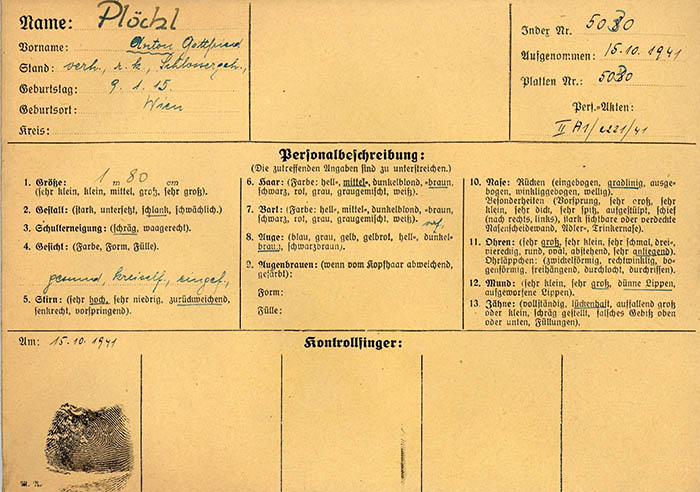 Name: Plöchl
Vorname: Anton Gottfried
Stand: verh., r. k., Schlossergeh.,
Geburtstag: 9. 1. 15.
Geburtsort: Wien
Kreis:
Index Nr. 5080
Aufgenommen: 15.10.1941
Platten Nr.: 5080
Pers.-Akten:
II A1/e221/41
Personalbeschreibung:
(Die zutreffenden Angaben sind zu unterstreichen.)
1. Größe: 1 m 80 cm
(sehr klein, klein, mittel, groß, sehr groß).
2. Gestalt: (stark, untersetzt, schlank, schwächlich.)
3. Schulterneigung: (schräg, waagerecht.)
4. Gesicht: (Farbe, Form, Fülle).
gesund, kreiself., eingef.,
5. Stirn: (sehr hoch, sehr niedrig, zurückweichend,
senkrecht, vorspringend).
6. Haar: (Farbe: hell-, mittel-, dunkelblond, -braun,
schwarz, rot, grau, graugemischt, weiß).
7. Bart: (Farbe: hell-, mittel-, dunkelblond, -braun,
schwarz, rot, grau, graugemischt, weiß). ras.
8. Auge: (blau, grau, gelb, gelbrot, hell-, dunkel-
braun, schwarzbraun).
9. Augenbrauen: (wenn vom Kopfhaar abweichend,
gefärbt):
Form:
Fülle:
10. Nase: Rücken (eingebogen, gradlinig, ausge-
bogen, winkliggebogen, wellig).
Besonderheiten (Vorsprung, sehr groß, sehr
klein, sehr dick, sehr spitz, aufgestülpt, schief
(nach rechts, links), stark sichtbare oder verdeckte
Nasenscheidewand, Adler-, Trinkernase).
11. Ohren: (sehr groß, sehr klein, sehr schmal, drei-,
viereckig, rund, oval, abstehend, sehr anliegend).
Ohrläppchen: (zwickelförmig, rechtwinklig, bo-
genförmig, freihängend, durchlocht, durchrissen).
12. Mund: (sehr klein, sehr groß, dünne Lippen,
aufgeworfene Lippen).
13. Zähne: (vollständig, lückenhaft, auffallend groß
oder klein, schräg gestellt, falsches Gebiß oben
oder unten, Füllungen).
Am: 15.10.1941
Kontrollfinger: